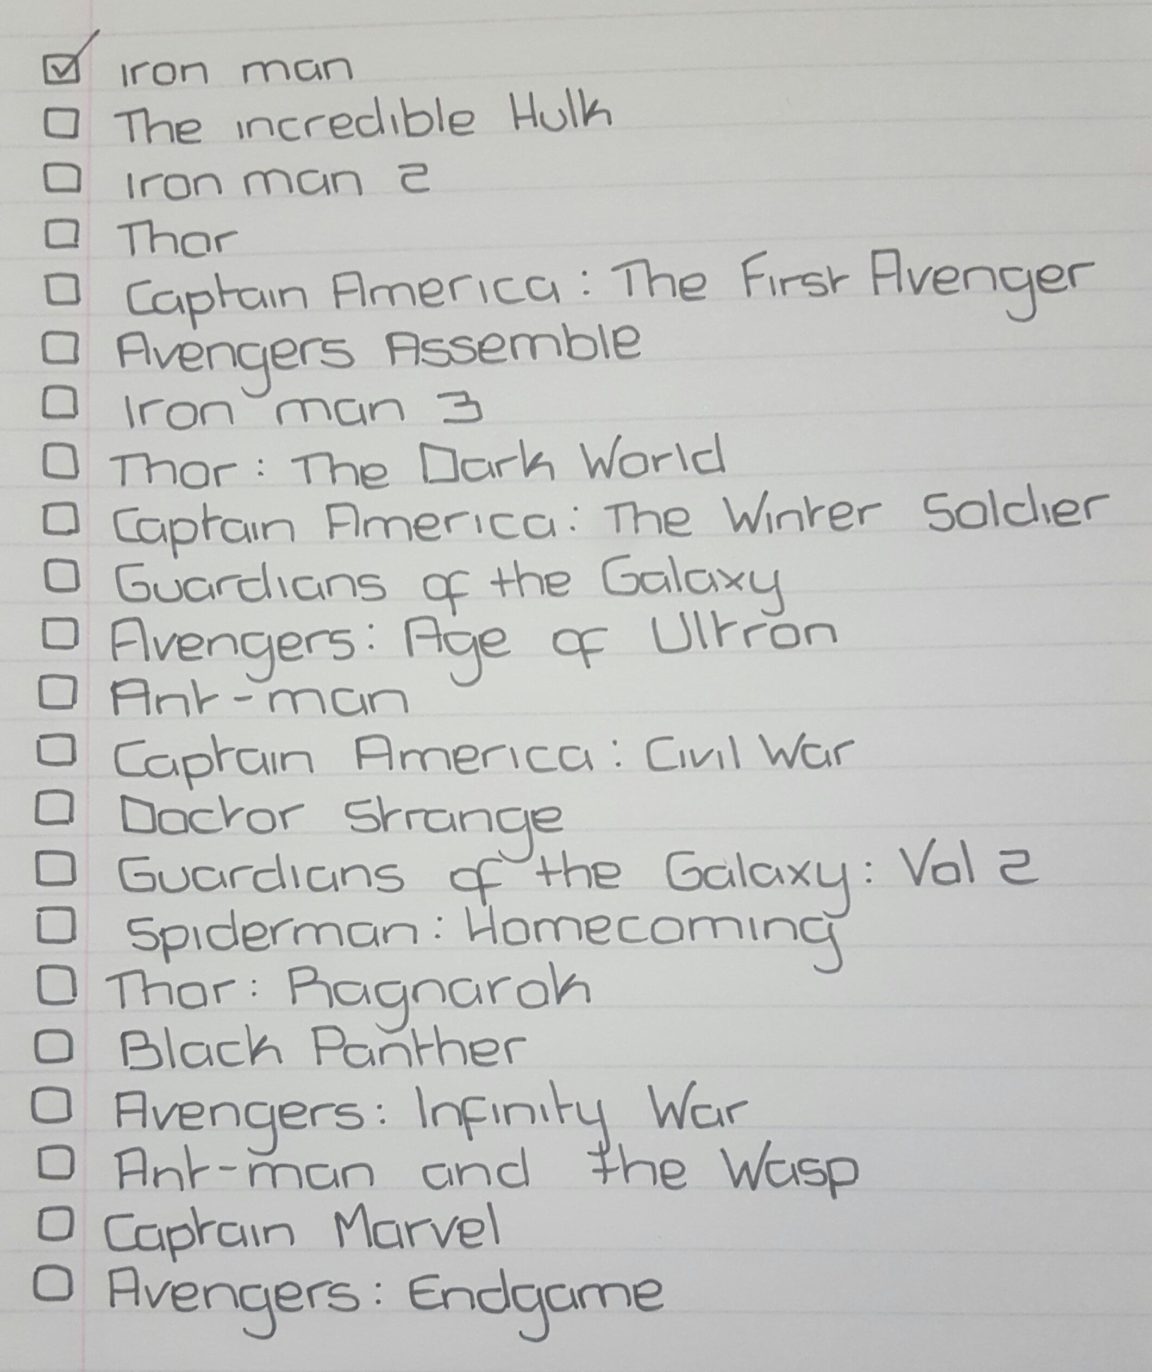 Iron man
The incredible Hulk
Iron man 2
Thor
Captain America: The First Avenger
Avengers Assemble
Iron man 3
Thor: The Dark World
Captain America: The Winter Soldier
Guardians of the Galaxy
Avengers: Age of Ultron
Ant-man
Captain America: Civil War
Doctor Strange
Guardians of the Galaxy: Vol 2
Spiderman: Homecoming
Thor: Ragnarok
Black Panther
Avengers: Infinity War
Ant-man and the Wasp
Captain Marvel
Avengers: Endgame